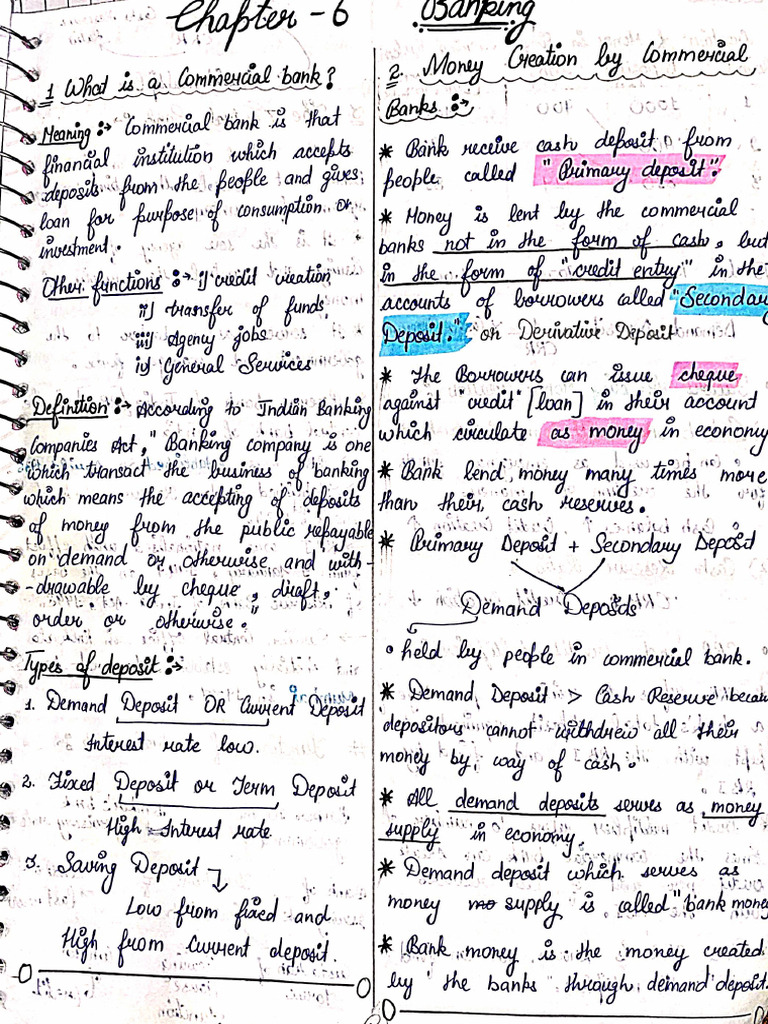 Chapter - 6 Banking
1 What is a Commercial bank?
Meaning :→ Commercial bank is that
financial institution which accepts
deposits from the people and gives
loan for purpose of consumption or
investment.
Other functions :→ i) credit creation
ii) transfer of funds
iii) Agency jobs
iv) General Services
Definition :→ According to Indian Banking
Companies Act, "Banking company is one
which transact the business of banking
which means the accepting of deposits
of money from the public repayable
on demand or otherwise and with-
-drawable by cheque, draft,
order or otherwise."
Types of deposit :→
1. Demand Deposit OR Current Deposit
Interest rate low.
2. Fixed Deposit or Term Deposit
High Interest rate
3. Saving Deposit →
Low from fixed and
High from Current deposit.
2. Money Creation by Commercial
Banks :→
* Bank receive cash deposit from
people called "Primary deposit".
* Money is lent by the commercial
banks not in the form of cash, but
in the form of "credit entry" in the
accounts of borrowers called "Secondary
Deposit." or Derivative Deposit
* The Borrowers can issue cheque
against "credit" [loan] in their account
which circulate as money in economy
* Bank lend money many times more
than their cash reserves.
* Primary Deposit + Secondary Deposit
Demand Deposits
• held by people in commercial bank.
* Demand Deposit > Cash Reserve becau
depositors cannot withdrew all their
money by way of cash.
* All demand deposits serves as money
supply in economy.
* Demand deposit which serves as
money supply is called "bank money
* Bank money is the money created
by the banks through demand deposit.